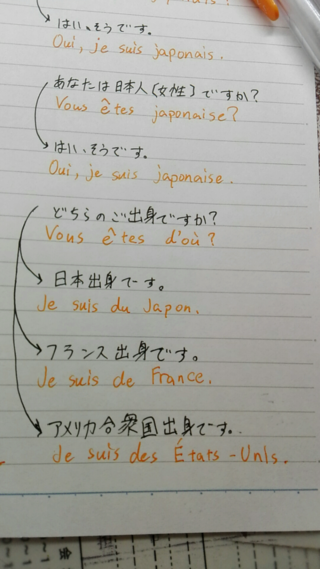 はい、そうです。
Oui, je suis japonais.
あなたは日本人(女性)ですか?
Vous êtes japonaise?
はい、そうです。
Oui, je suis japonaise.
どちらのご出身ですか?
Vous êtes d'où?
日本出身です。
Je suis du Japon.
フランス出身です。
Je suis de France.
アメリカ合衆国出身です。
Je suis des États-Unis.